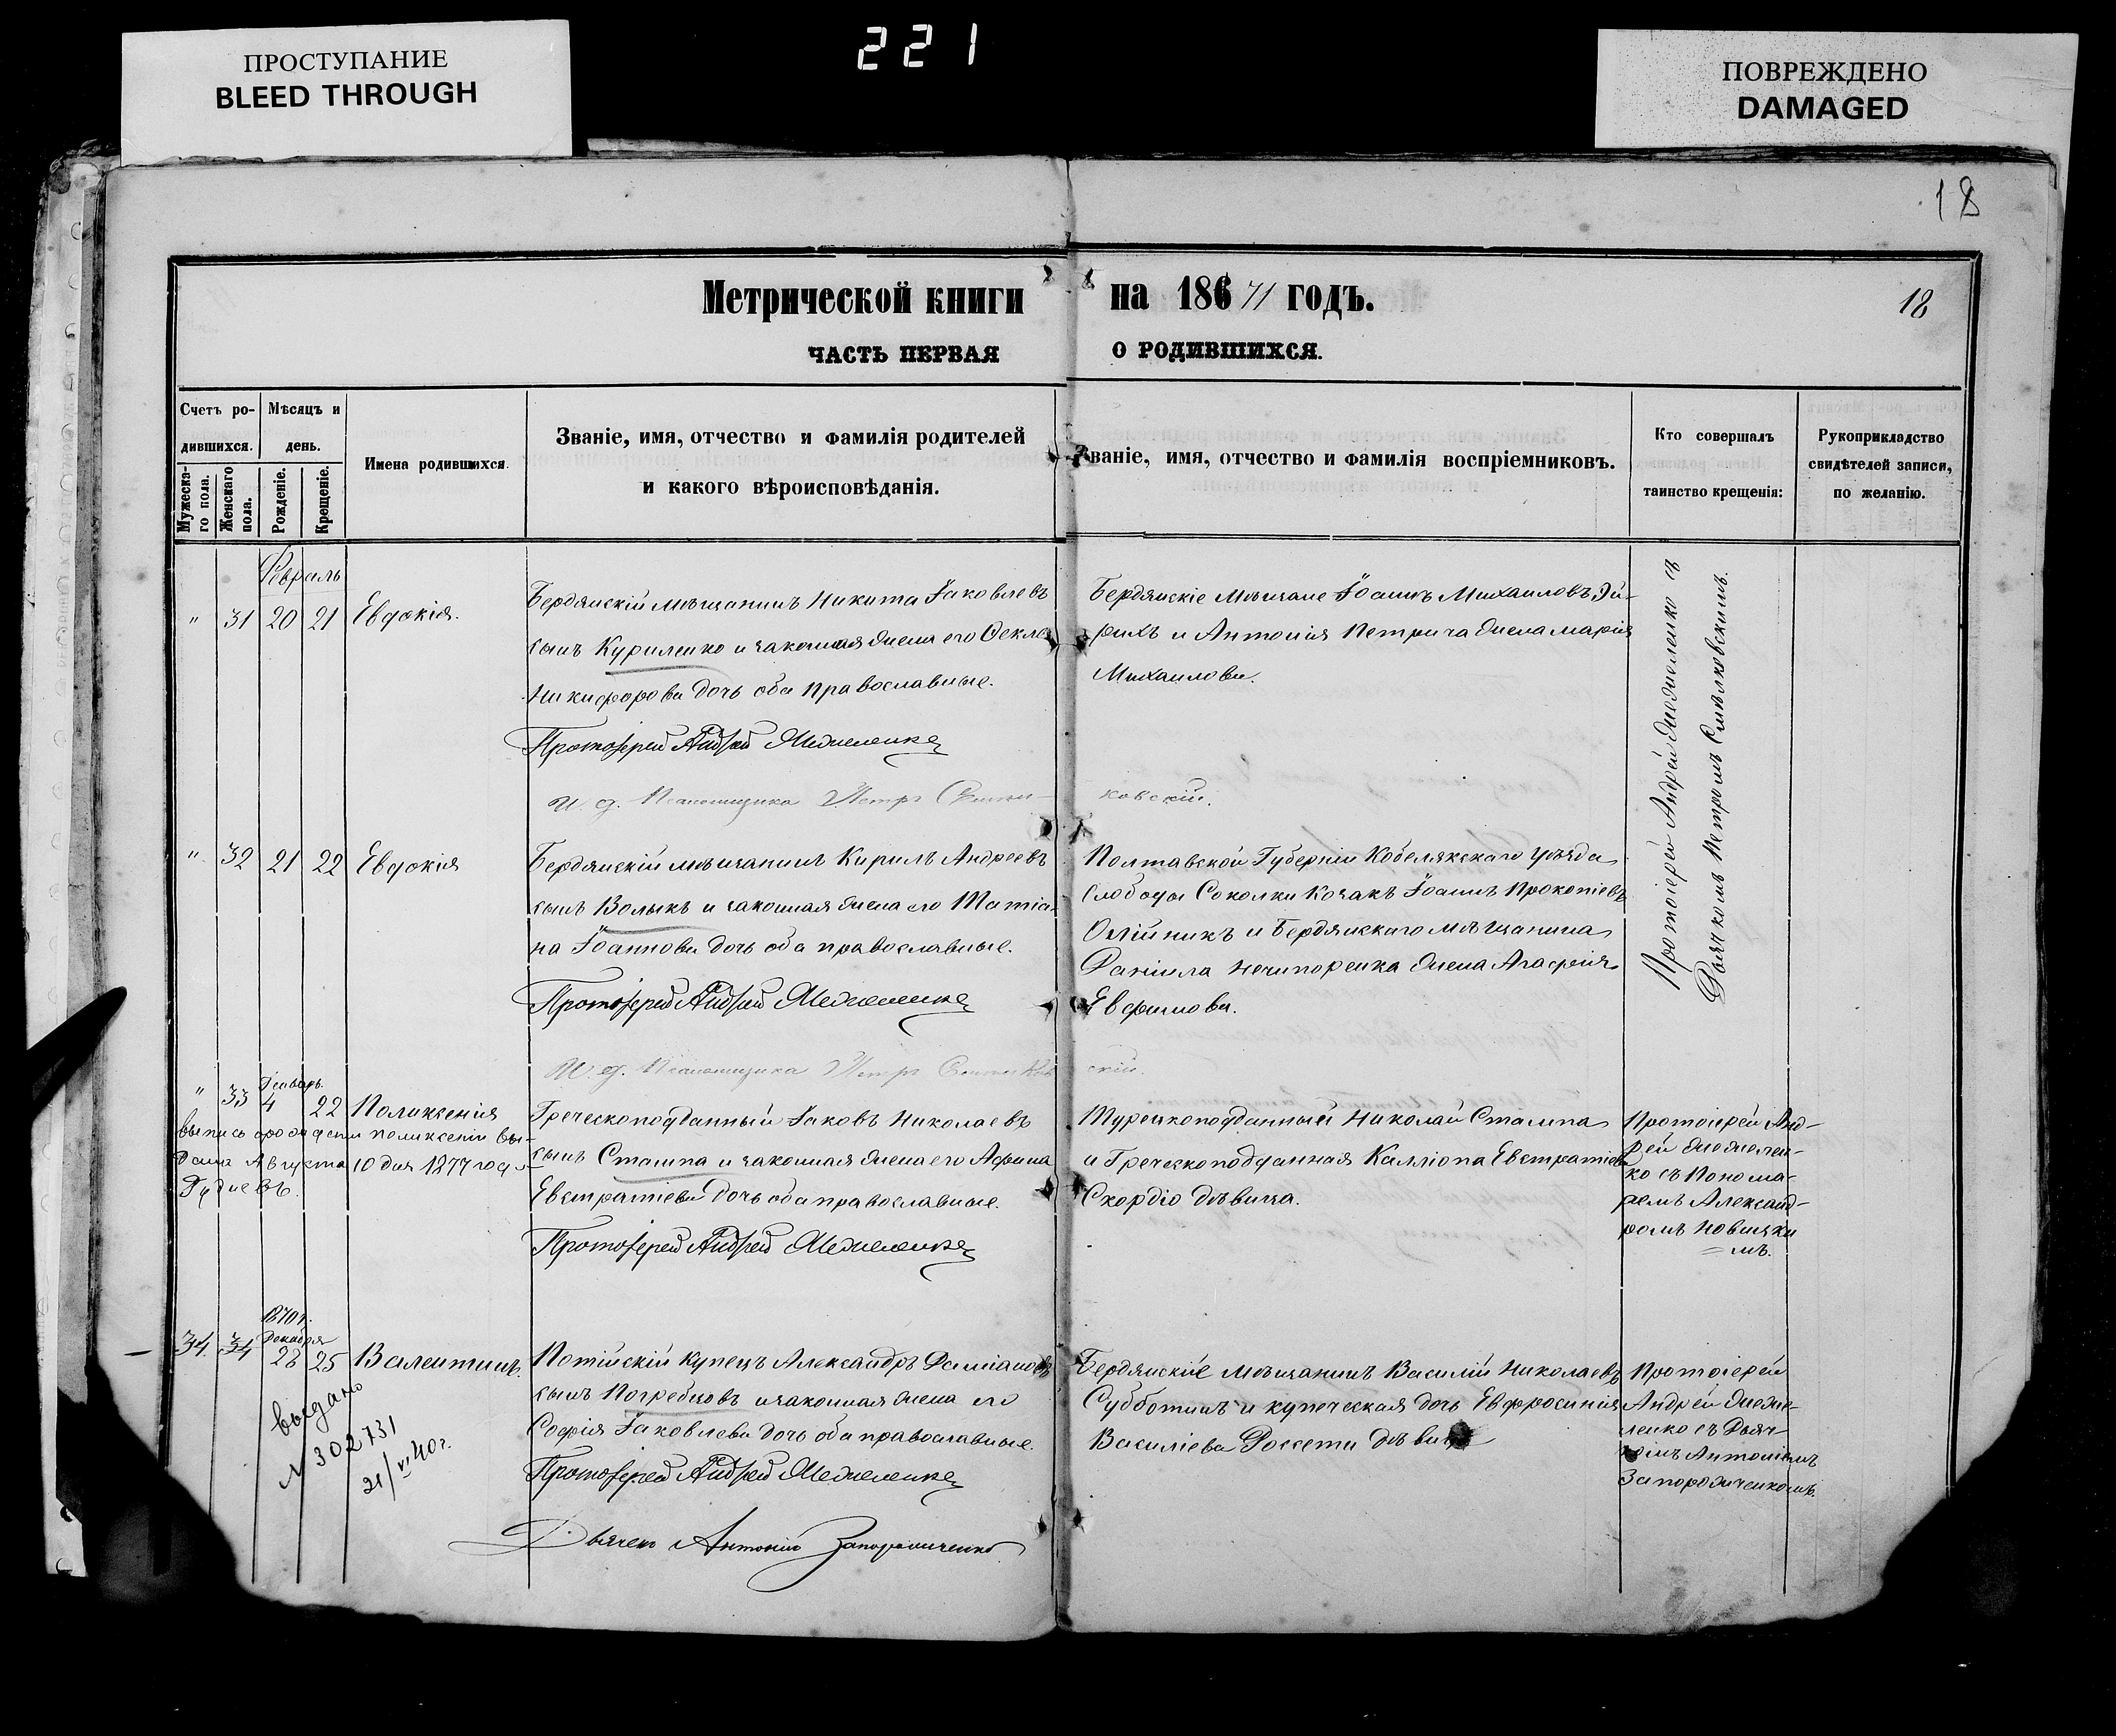 ПРОСТУПАНИЕ
BLEED THROUGH
221
ПОВРЕЖДЕНО
DAMAGED
18
Метрической книги на 18671 годъ.
18
ЧАСТЬ ПЕРВАЯ О РОДИВШИХСЯ.
Счетъ ро-
дившихся.
Мужеска-
го пола.
Женскаго
пола.
Мѣсяцъ и
день.
Рожденіе.
Крещеніе.
Имена родившихся.
Званіе, имя, отчество и фамилія родителей
и какого вѣроисповѣданія.
Званіе, имя, отчество и фамилія воспріемниковъ.
Кто совершалъ
таинство крещенія:
Рукоприкладство
свидѣтелей записи,
по желанію.
Февраль
" 31 20 21 Евдокія.
Бердянскій мѣщанинъ Никита Іаковлевъ
сынъ Куриленко и законная жена его Фекла
Никифорова дочь оба православные.
Протоіерей Андрей
И. д. Псаломщика Петръ
ковскій.
Бердянскіе мѣщане Іоаннъ Михаиловъ
рихъ и Антонія Петрича жена Марія
Михаилова.
Протоіерей Андрей съ
Дьячкомъ Петромъ
" 32 21 22 Евдокія
Бердянскій мѣщанинъ Кирилъ Андреевъ
сынъ Волыкъ и законная жена его Татіа-
на Іоаннова дочь оба православные.
Протоіерей Андрей
И. д. Псаломщика Петръ
скій.
Полтавской Губерніи Кобелякскаго уѣзда
слободы Соколки Козакъ Іоаннъ Прокопіевъ
Олійникъ и Бердянскаго мѣщанина
Даніила Нечипоренка жена Агафія
Евфимова.
Генварь.
" 33 4 22 Поликсенія
выпись о рождении поликсении вы-
дана Августа 10 дня 1877 года
Греческоподданный Іаковъ Николаевъ
сынъ Стампа и законная жена его Афина
Евстратіева дочь оба православные.
Протоіерей Андрей
Турецкоподданный Николай Стампа
и Греческоподданная Калліопа Евстратіева
Скордіо дѣвица.
Протоіерей Анд-
рей
ко съ Понома-
ремъ Александ-
ромъ
мъ.
1870 г.
Декабря
34. 34 23 25 Валентинъ.
выдано
N 302731
21/VI 40 г.
Потійскій купецъ Александръ Даміановъ
сынъ Погребновъ и законная жена его
Софія Іаковлева дочь оба православные.
Протоіерей Андрей
Дьячекъ Антоній Запорожченко
Бердянскіе мѣщанинъ Василій Николаевъ
Субботинъ и купеческая дочь Евфросинія
Василіева Россети дѣвица
Протоіерей
Андрей
ленко съ Дьяч-
комъ Антоніемъ
Запорожченкомъ.